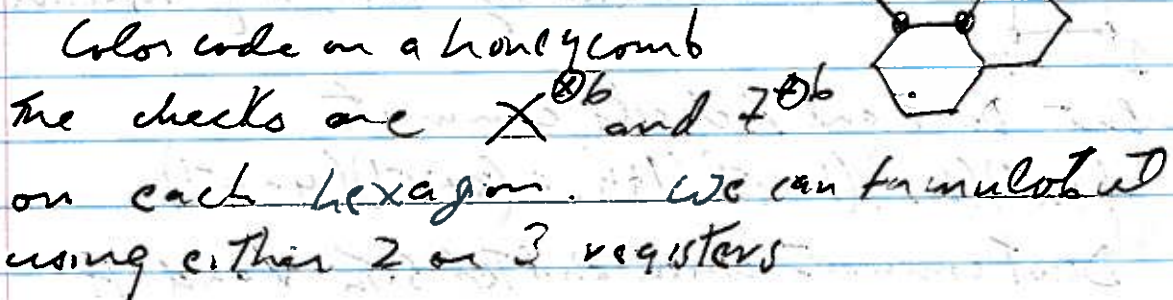 Color code on a honeycomb
The checks are X^⊗6 and Z^⊗6
on each hexagon. We can formulate it
using either 2 or 3 registers